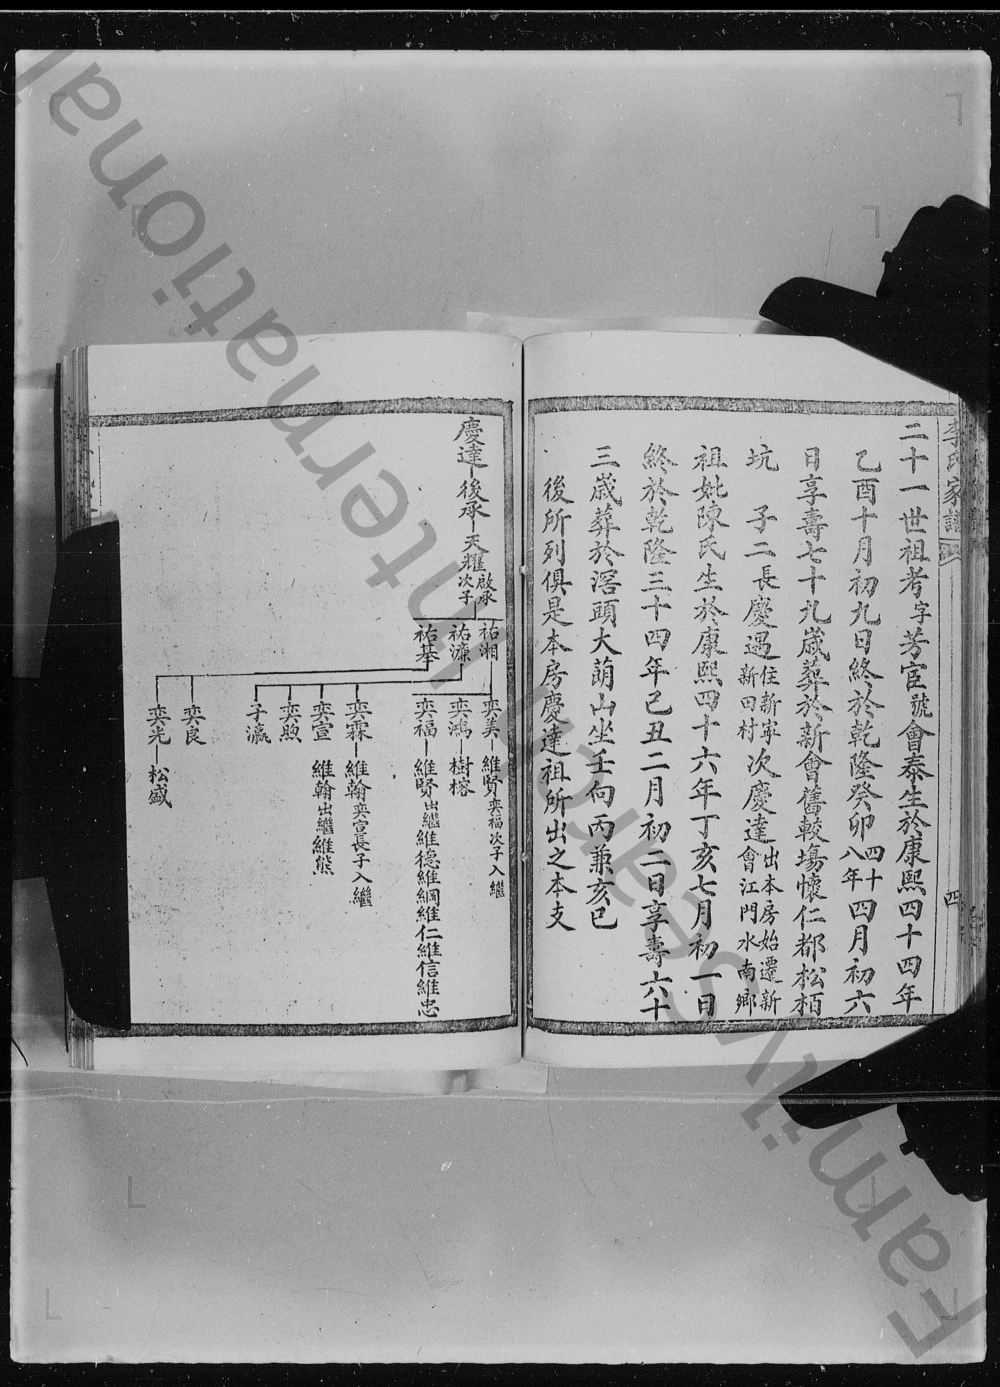 李氏家譜
四
二十一世祖考字芳宦號會泰生於康熙四十四年
乙酉十月初九日終於乾隆癸卯四十八年四月初六
日享壽七十九歲葬於新會舊較塲懷仁都松栢
坑 子二長慶遇住新寧新田村次慶達出本房始遷新會江門水南鄉
祖妣陳氏生於康熙四十六年丁亥七月初一日
終於乾隆三十四年己丑二月初二日享壽六十
三歲葬於滘頭大萠山坐壬向丙兼亥巳
後所列俱是本房慶達祖所出之本支
慶達 後承 天耀啟承次子
祐湘
祐濂
祐基
奕美 維賢奕福次子入繼
奕鴻 樹榕
奕福 維賢出繼維德維綱維仁維信維忠
奕霖 維翰奕宣長子入繼
奕宣 維翰出繼維熊
奕煦
子瀛
奕良
奕光 松盛
FamilySearch International